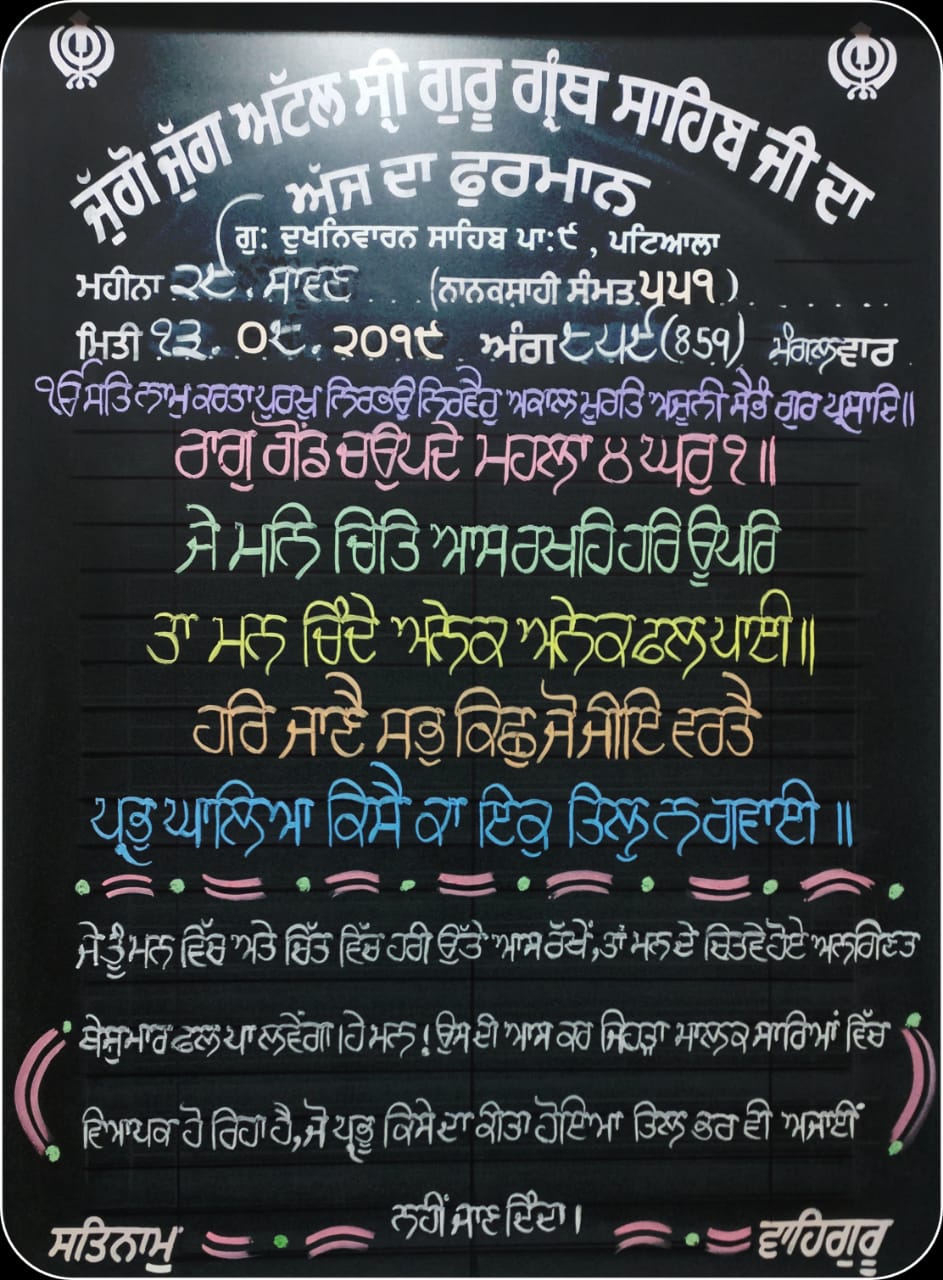 ਜੁੱਗੋ ਜੁੱਗ ਅਟੱਲ ਸ੍ਰੀ ਗੁਰੂ ਗ੍ਰੰਥ ਸਾਹਿਬ ਜੀ ਦਾ
ਅੱਜ ਦਾ ਫੁਰਮਾਨ
ਗੁ: ਦੁਖਨਿਵਾਰਨ ਸਾਹਿਬ ਪਾ:੯ , ਪਟਿਆਲਾ
ਮਹੀਨਾ ੨੯. ਸਾਵਣ (ਨਾਨਕਸਾਹੀ ਸੰਮਤ ੫੫੧ )
ਮਿਤੀ ੧੩. ੦੮. ੨੦੧੯ ਅੰਗ ੮੫੯ (859) ਮੰਗਲਵਾਰ
ੴ ਸਤਿ ਨਾਮੁ ਕਰਤਾ ਪੁਰਖੁ ਨਿਰਭਉ ਨਿਰਵੈਰੁ ਅਕਾਲ ਮੂਰਤਿ ਅਜੂਨੀ ਸੈਭੰ ਗੁਰ ਪ੍ਰਸਾਦਿ॥
ਰਾਗੁ ਗੋਂਡ ਚਉਪਦੇ ਮਹਲਾ ੪ ਘਰੁ ੧॥
ਜੇ ਮਨਿ ਚਿਤਿ ਆਸ ਰਖਹਿ ਹਰਿ ਊਪਰਿ
ਤਾ ਮਨ ਚਿੰਦੇ ਅਨੇਕ ਅਨੇਕ ਫਲ ਪਾਈ॥
ਹਰਿ ਜਾਣੈ ਸਭੁ ਕਿਛੁ ਜੋ ਜੀਇ ਵਰਤੈ
ਪ੍ਰਭੁ ਘਾਲਿਆ ਕਿਸੈ ਕਾ ਇਕੁ ਤਿਲੁ ਨ ਗਵਾਈ ॥
ਜੇ ਤੂੰ ਮਨ ਵਿੱਚ ਅਤੇ ਚਿੱਤ ਵਿੱਚ ਹਰੀ ਉੱਤੇ ਆਸ ਰੱਖੇਂ,ਤਾਂ ਮਨ ਦੇ ਚਿਤਵੇ ਹੋਏ ਅਨਗਿਣਤ
ਬੇਸ਼ੁਮਾਰ ਫਲ ਪਾ ਲਵੇਂਗਾ।ਹੇ ਮਨ! ਉਸ ਦੀ ਆਸ ਕਰ ਜਿਹੜਾ ਮਾਲਕ ਸਾਰਿਆਂ ਵਿੱਚ
ਵਿਆਪਕ ਹੋ ਰਿਹਾ ਹੈ,ਜੋ ਪ੍ਰਭੂ ਕਿਸੇ ਦਾ ਕੀਤਾ ਹੋਇਆ ਤਿਲ ਭਰ ਵੀ ਅਜਾਈਂ
ਨਹੀਂ ਜਾਣ ਦਿੰਦਾ।
ਸਤਿਨਾਮੁ ਵਾਹਿਗੁਰੂ